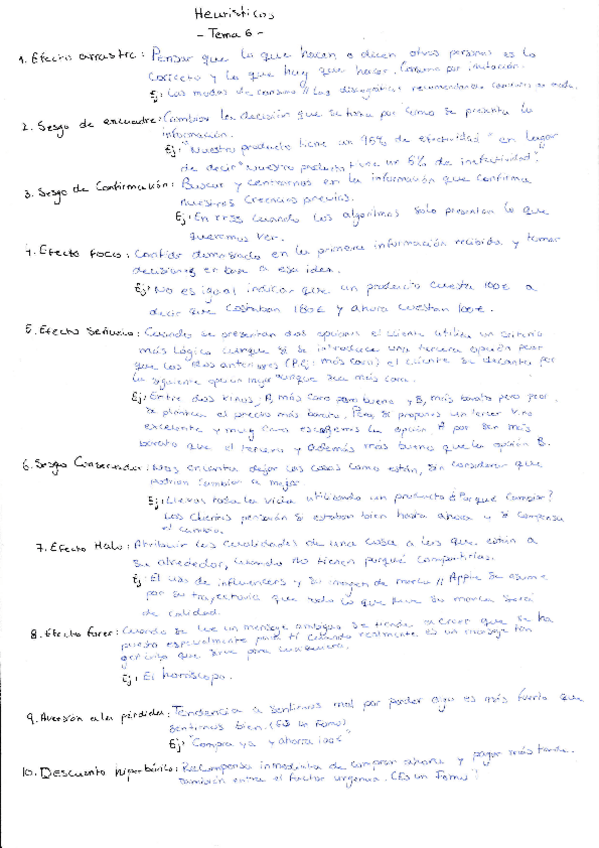 Heurísticos
- Tema 6 -
1. Efecto arrastre: Pensar que lo que hacen o dicen otras personas es lo
correcto y lo que hay que hacer. Consumo por imitación.
Ej: Las modas de consumo // Las discográficas recomendando canciones de moda.
2. Sesgo de encuadre: Cambiar la decisión que se toma por como se presenta la
información.
Ej: "Nuestro producto tiene un 95% de efectividad" en lugar
de decir "Nuestro producto tiene un 5% de inefectividad".
3. Sesgo de Confirmación: Buscar y centrarnos en la información que confirma
nuestras creencias previas.
Ej: En RRSS cuando los algoritmos solo presentan lo que
queremos ver.
4. Efecto foco: Confiar demasiado en la primera información recibida y tomar
decisiones en base a esa idea.
Ej: No es igual indicar que un producto cuesta 100€ a
decir que costaban 180€ y ahora cuestan 100€.
5. Efecto Señuelo: Cuando se presentan dos opciones el cliente utiliza un criterio
más lógico aunque si se introduce una tercera opción peor
que las dos anteriores (P.Ej: más cara) el cliente se decanta por
la siguiente opción mejor aunque sea más cara.
Ej: Entre dos vinos: A, más caro pero bueno y B, más barato pero peor.
Se plantea el precio más barato. Pero si propones un tercer vino
excelente y muy caro escogemos la opción A por ser más
barato que el tercero y además más bueno que la opción B.
6. Sesgo Conservador: Nos encanta dejar las cosas como están, sin considerar que
podrían cambiar a mejor.
Ej: Llevas toda la vida utilizando un producto ¿Por qué cambiar?
Los clientes pensarán si estaban bien hasta ahora y si compensa
el cambio.
7. Efecto Halo: Atribuir las cualidades de una cosa a las que están a
su alrededor, cuando no tienen porqué compartirlas.
Ej: El uso de influencers y su imagen de marca // Apple se asume
por su trayectoria que todo lo que lleve su marca será
de calidad.
8. Efecto forer: Cuando se lee un mensaje ambiguo se tiende a creer que se ha
puesto especialmente para ti cuando realmente es un mensaje tan
genérico que sirve para cualquiera.
Ej: El horóscopo.
9. Aversión a la pérdida: Tendencia a sentirnos mal por perder algo es más fuerte que
sentirnos bien. (Es un Fomo)
Ej: "Compra ya y ahorra 100€"
10. Descuento hiperbólico: Recompensa inmediata de comprar ahora y pagar más tarde.
también entra el factor urgencia. (Es un Fomo)